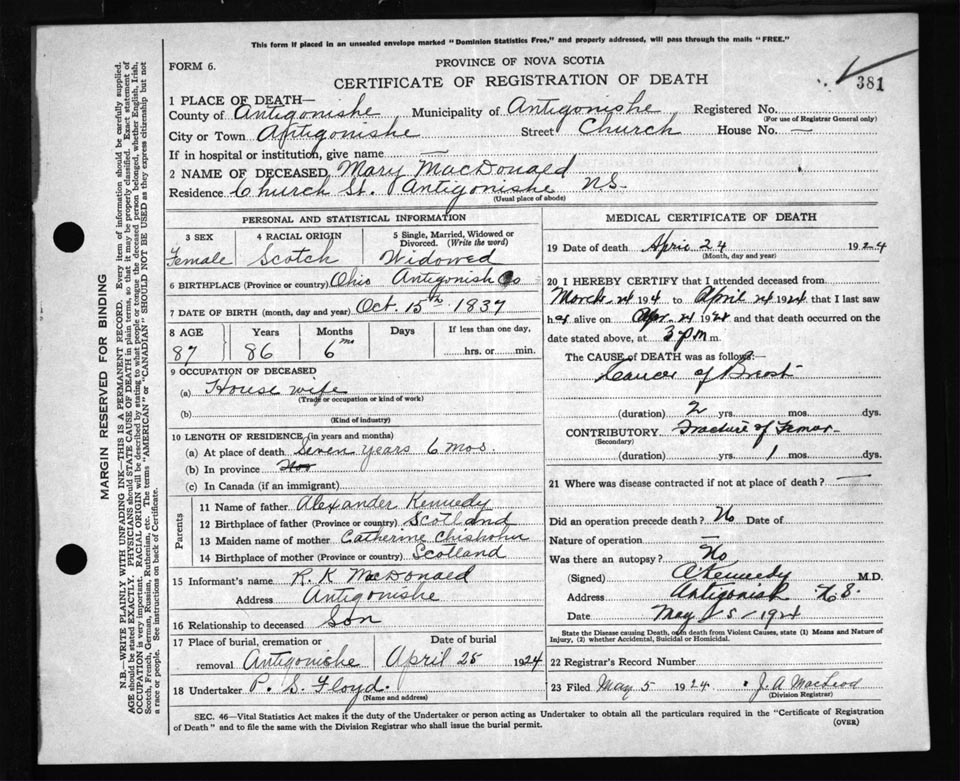 This form if placed in an unsealed envelope marked "Dominion Statistics Free," and properly addressed, will pass through the mails "FREE."
FORM 6.
PROVINCE OF NOVA SCOTIA
CERTIFICATE OF REGISTRATION OF DEATH
381
1 PLACE OF DEATH—
County of Antigonishe Municipality of Antigonishe Registered No.
(For use of Registrar General only)
City or Town Antigonishe Street Church House No. —
If in hospital or institution, give name —
2 NAME OF DECEASED Mary MacDonald
Residence Church St. Antigonishe N.S.
(Usual place of abode)
PERSONAL AND STATISTICAL INFORMATION
3 SEX 4 RACIAL ORIGIN 5 Single, Married, Widowed or Divorced. (Write the word)
Female Scotch Widowed
6 BIRTHPLACE (Province or country) Ohio Antigonish Co
7 DATE OF BIRTH (month, day and year) Oct. 15th 1837
8 AGE Years Months Days If less than one day,
87 86 6 mo hrs. or min.
9 OCCUPATION OF DECEASED
(a) House wife
(Trade or occupation or kind of work)
(b)
(Kind of industry)
10 LENGTH OF RESIDENCE (in years and months)
(a) At place of death Seven years 6 mos.
(b) In province
(c) In Canada (if an immigrant)
Parents
11 Name of father Alexander Kennedy
12 Birthplace of father (Province or country) Scotland
13 Maiden name of mother Catherine Chisholm
14 Birthplace of mother (Province or Country) Scotland
15 Informant's name R. K MacDonald
Address Antigonishe
16 Relationship to deceased Son
17 Place of burial, cremation or removal Antigonishe Date of burial April 25 1924
18 Undertaker P. S. Floyd.
(Name and address)
MEDICAL CERTIFICATE OF DEATH
19 Date of death April 24 1924
(Month, day and year)
20 I HEREBY CERTIFY that I attended deceased from
March 24 to April 24 1924 that I last saw
her alive on Apr. 24 192 and that death occurred on the
date stated above, at 3 pm m.
The CAUSE of DEATH was as follows:
Cancer of Breast
(duration) 2 yrs. mos. dys.
CONTRIBUTORY Fracture of Femor
(Secondary)
(duration) yrs. 1 mos. dys.
21 Where was disease contracted if not at place of death? —
Did an operation precede death? No Date of
Nature of operation —
Was there an autopsy? No
(Signed) Kennedy M.D.
Address Antigonish N.S.
Date May 5 1924
State the Disease causing Death, or in death from Violent Causes, state (1) Means and Nature of
Injury, (2) whether Accidental, Suicidal or Homicidal.
22 Registrar's Record Number
23 Filed May 5 1924 J. A MacLeod
(Division Registrar)
SEC. 46—Vital Statistics Act makes it the duty of the Undertaker or person acting as Undertaker to obtain all the particulars required in the "Certificate of Registration
of Death" and to file the same with the Division Registrar who shall issue the burial permit.
(OVER)
MARGIN RESERVED FOR BINDING
N.B.—WRITE PLAINLY WITH UNFADING INK—THIS IS A PERMANENT RECORD. Every item of information should be carefully supplied.
AGE should be stated EXACTLY. PHYSICIANS should STATE CAUSE OF DEATH in plain terms, so that it may be properly classified. Exact statement of
OCCUPATION is very important. RACIAL ORIGIN will be described by stating to what people or tongue the deceased person belonged, whether English, Irish,
Scotch, French, German, Russian, Ruthenian, etc. The terms "AMERICAN" or "CANADIAN" SHOULD NOT BE USED as they express citizenship but not
a race or people. See instructions on back of Certificate.